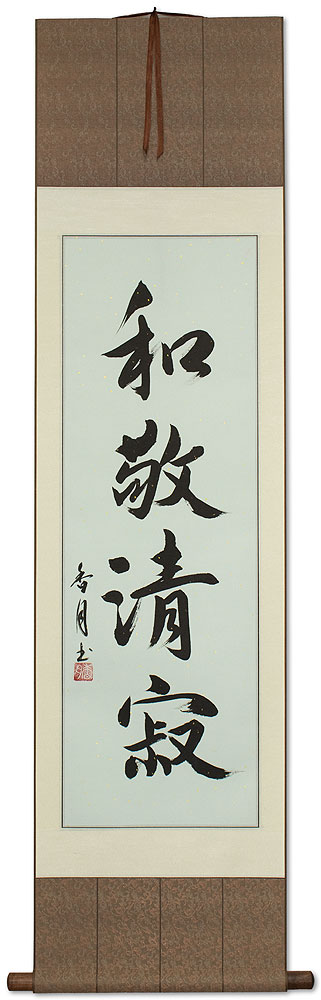 和敬清寂
香月書